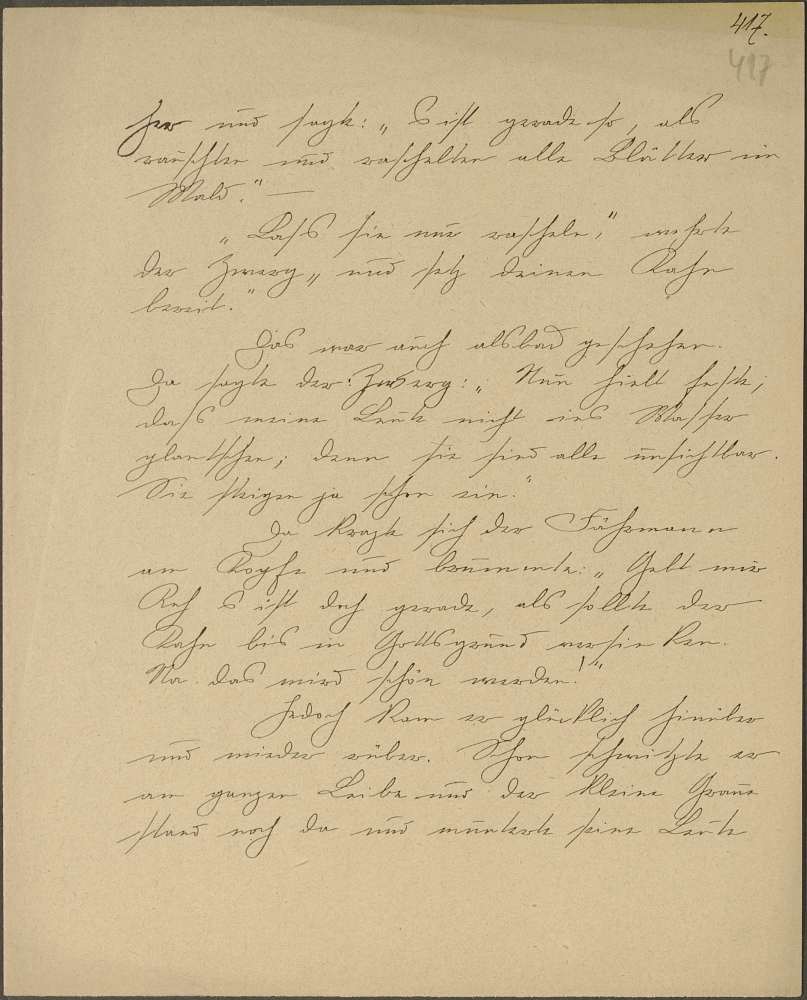 417.
417
her und sagte: „ S ist gerade so, als
rauschten und raschelten alle Blätter im
Wald." —
„ Lass sie nur rascheln," wehrte
der Zwerg „ und setz deinen Kahn
bereit."
Das war auch alsbad geschehen.
Da sagte der Zwerg: „ Nun hielt feste,
dass meine Leute nicht ins Wasser
plantschen; denn sie sind alle unsichtbar.
Sie steigen ja schon ein."
Da kragte sich der Fährmann
am Kopfe und brummte: „ Gebt mir
Ruh S ist doch gerade, als sollte der
Kahn bis in Gottsgrund versinken.
Na. das wird schön werden!"
Jedoch kam er glücklich hinüber
und wieder rüber. Schon schwitzte er
am ganzen Leibe und der kleine Graue
stand noch da und munterte seine Leute